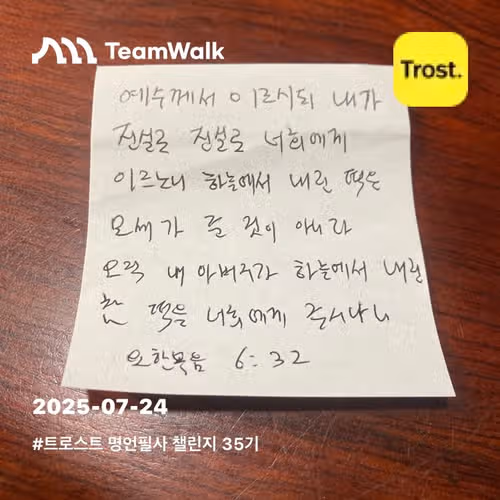 TeamWalk
Trost.
예수께서 이르시되 내가
진실로 진실로 너희에게
이르노니 하늘에서 내린 떡은
모세가 준 것이 아니라
오직 내 아버지가 하늘에서 내린
참 떡을 너희에게 주시나니
요한복음 6:32
2025-07-24
#트로스트 명언필사 챌린지 35기